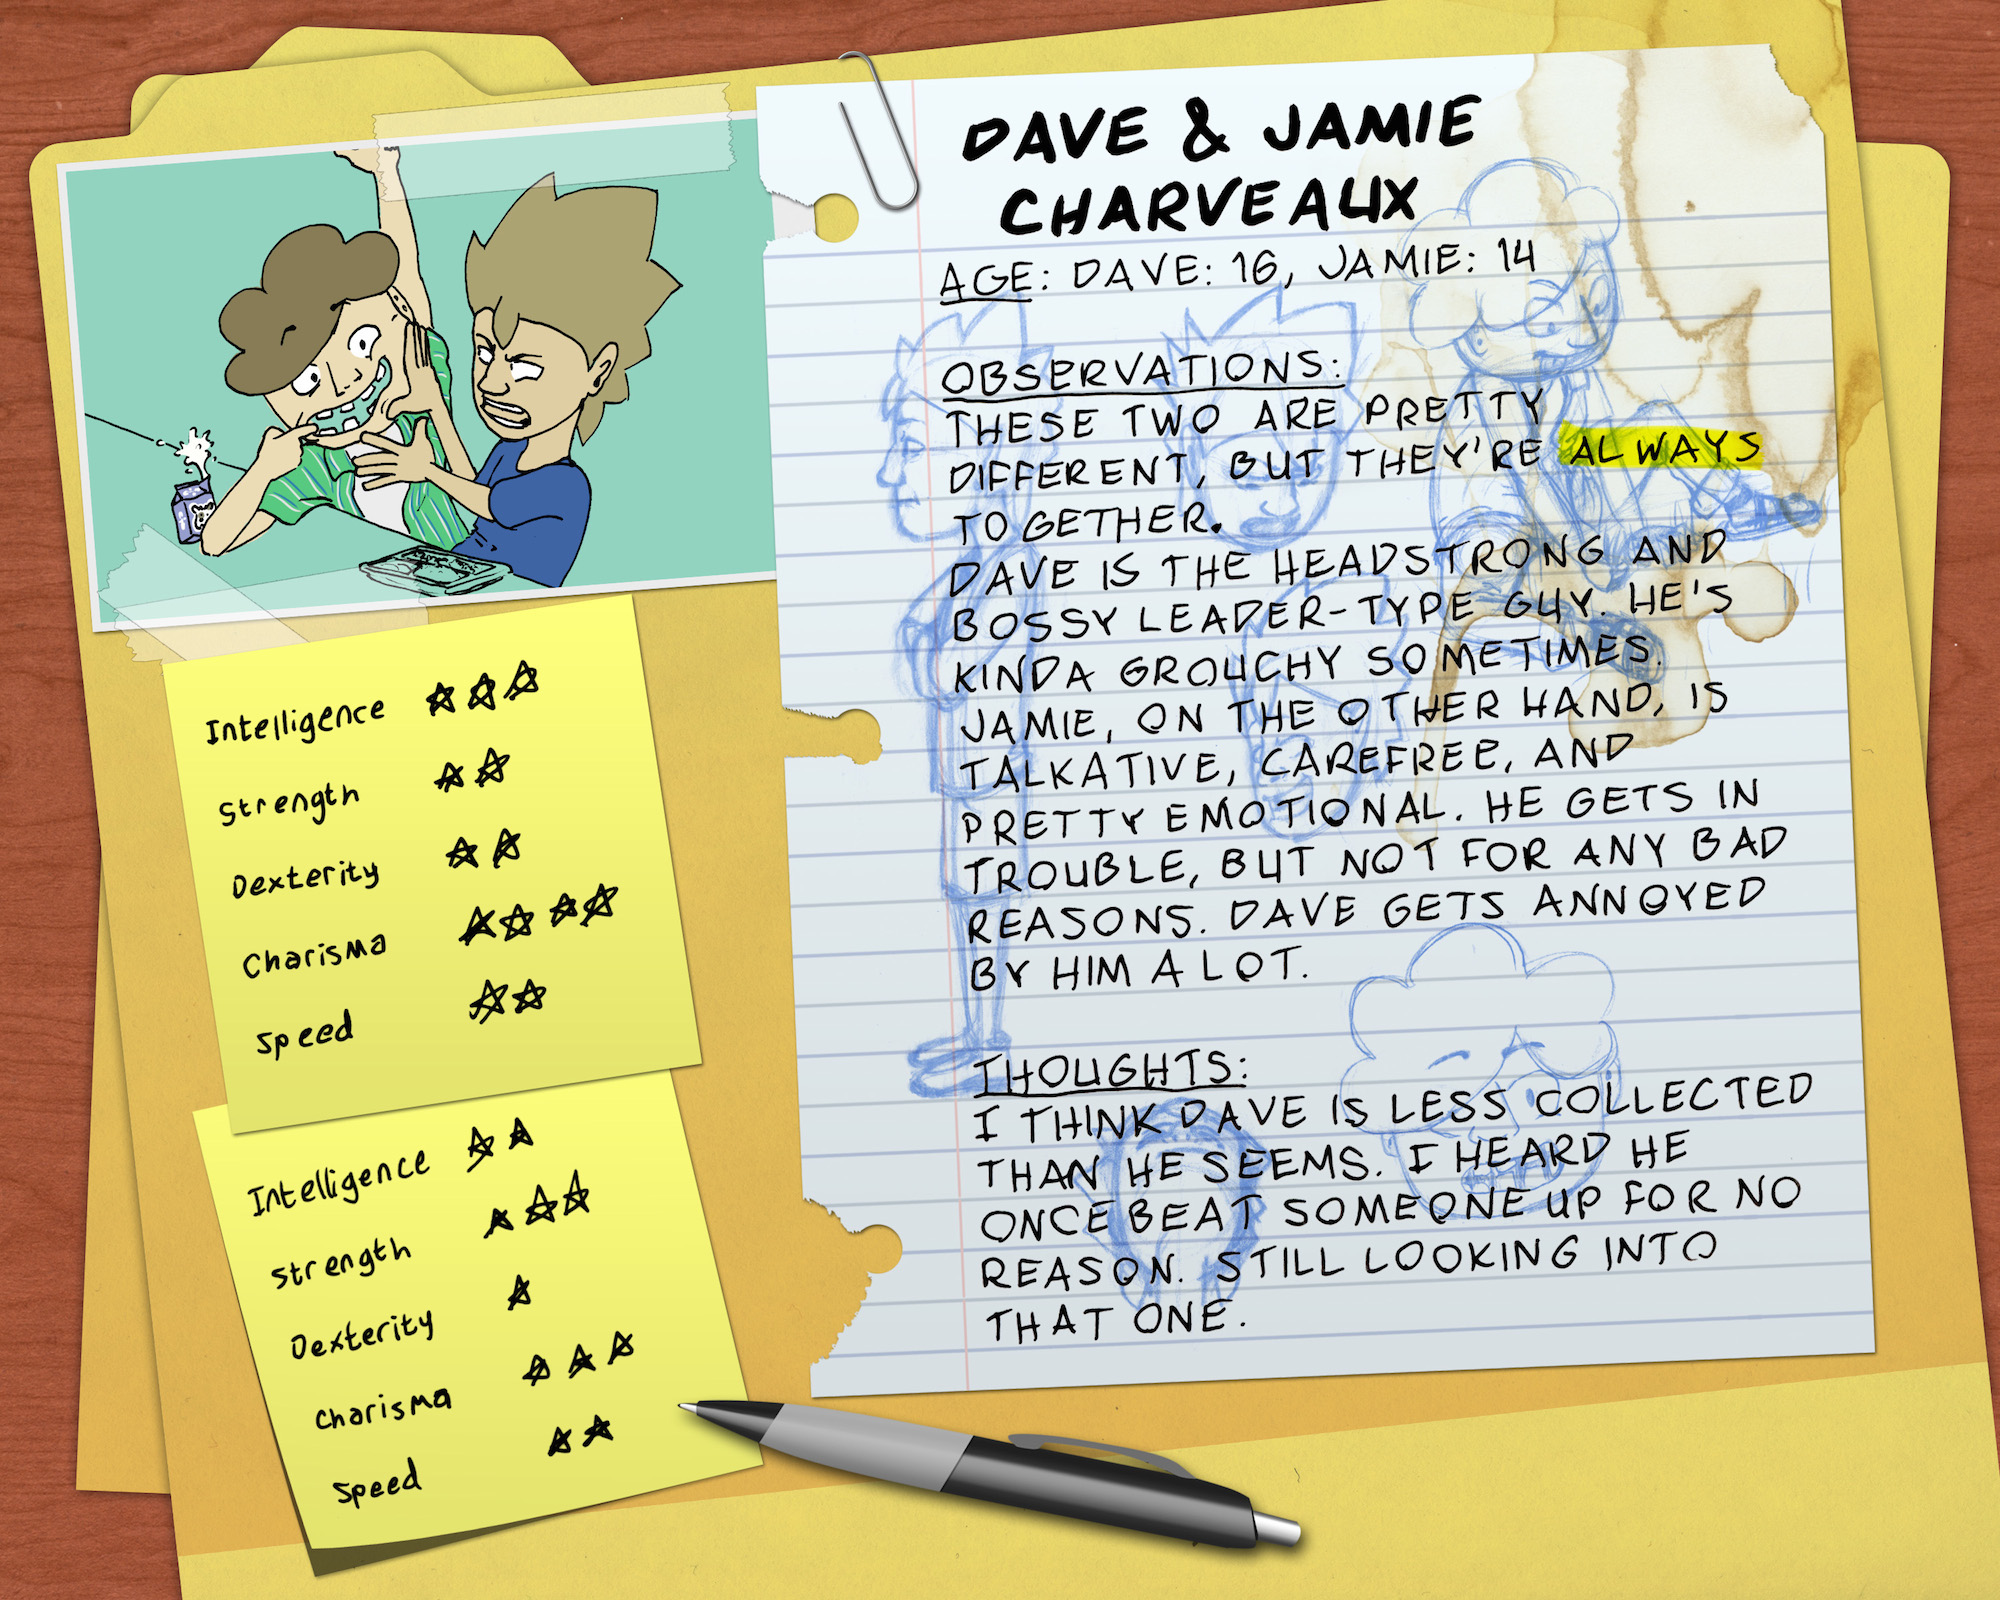 DAVE & JAMIE
CHARVEAUX
AGE: DAVE: 16, JAMIE: 14
OBSERVATIONS:
THESE TWO ARE PRETTY
DIFFERENT, BUT THEY'RE ALWAYS
TOGETHER.
DAVE IS THE HEADSTRONG AND
BOSSY LEADER-TYPE GUY. HE'S
KINDA GROUCHY SOMETIMES.
JAMIE, ON THE OTHER HAND, IS
TALKATIVE, CAREFREE, AND
PRETTY EMOTIONAL. HE GETS IN
TROUBLE, BUT NOT FOR ANY BAD
REASONS. DAVE GETS ANNOYED
BY HIM A LOT.
THOUGHTS:
I THINK DAVE IS LESS COLLECTED
THAN HE SEEMS. I HEARD HE
ONCE BEAT SOMEONE UP FOR NO
REASON. STILL LOOKING INTO
THAT ONE.
Intelligence
Strength
Dexterity
Charisma
Speed
Intelligence
Strength
Dexterity
Charisma
Speed